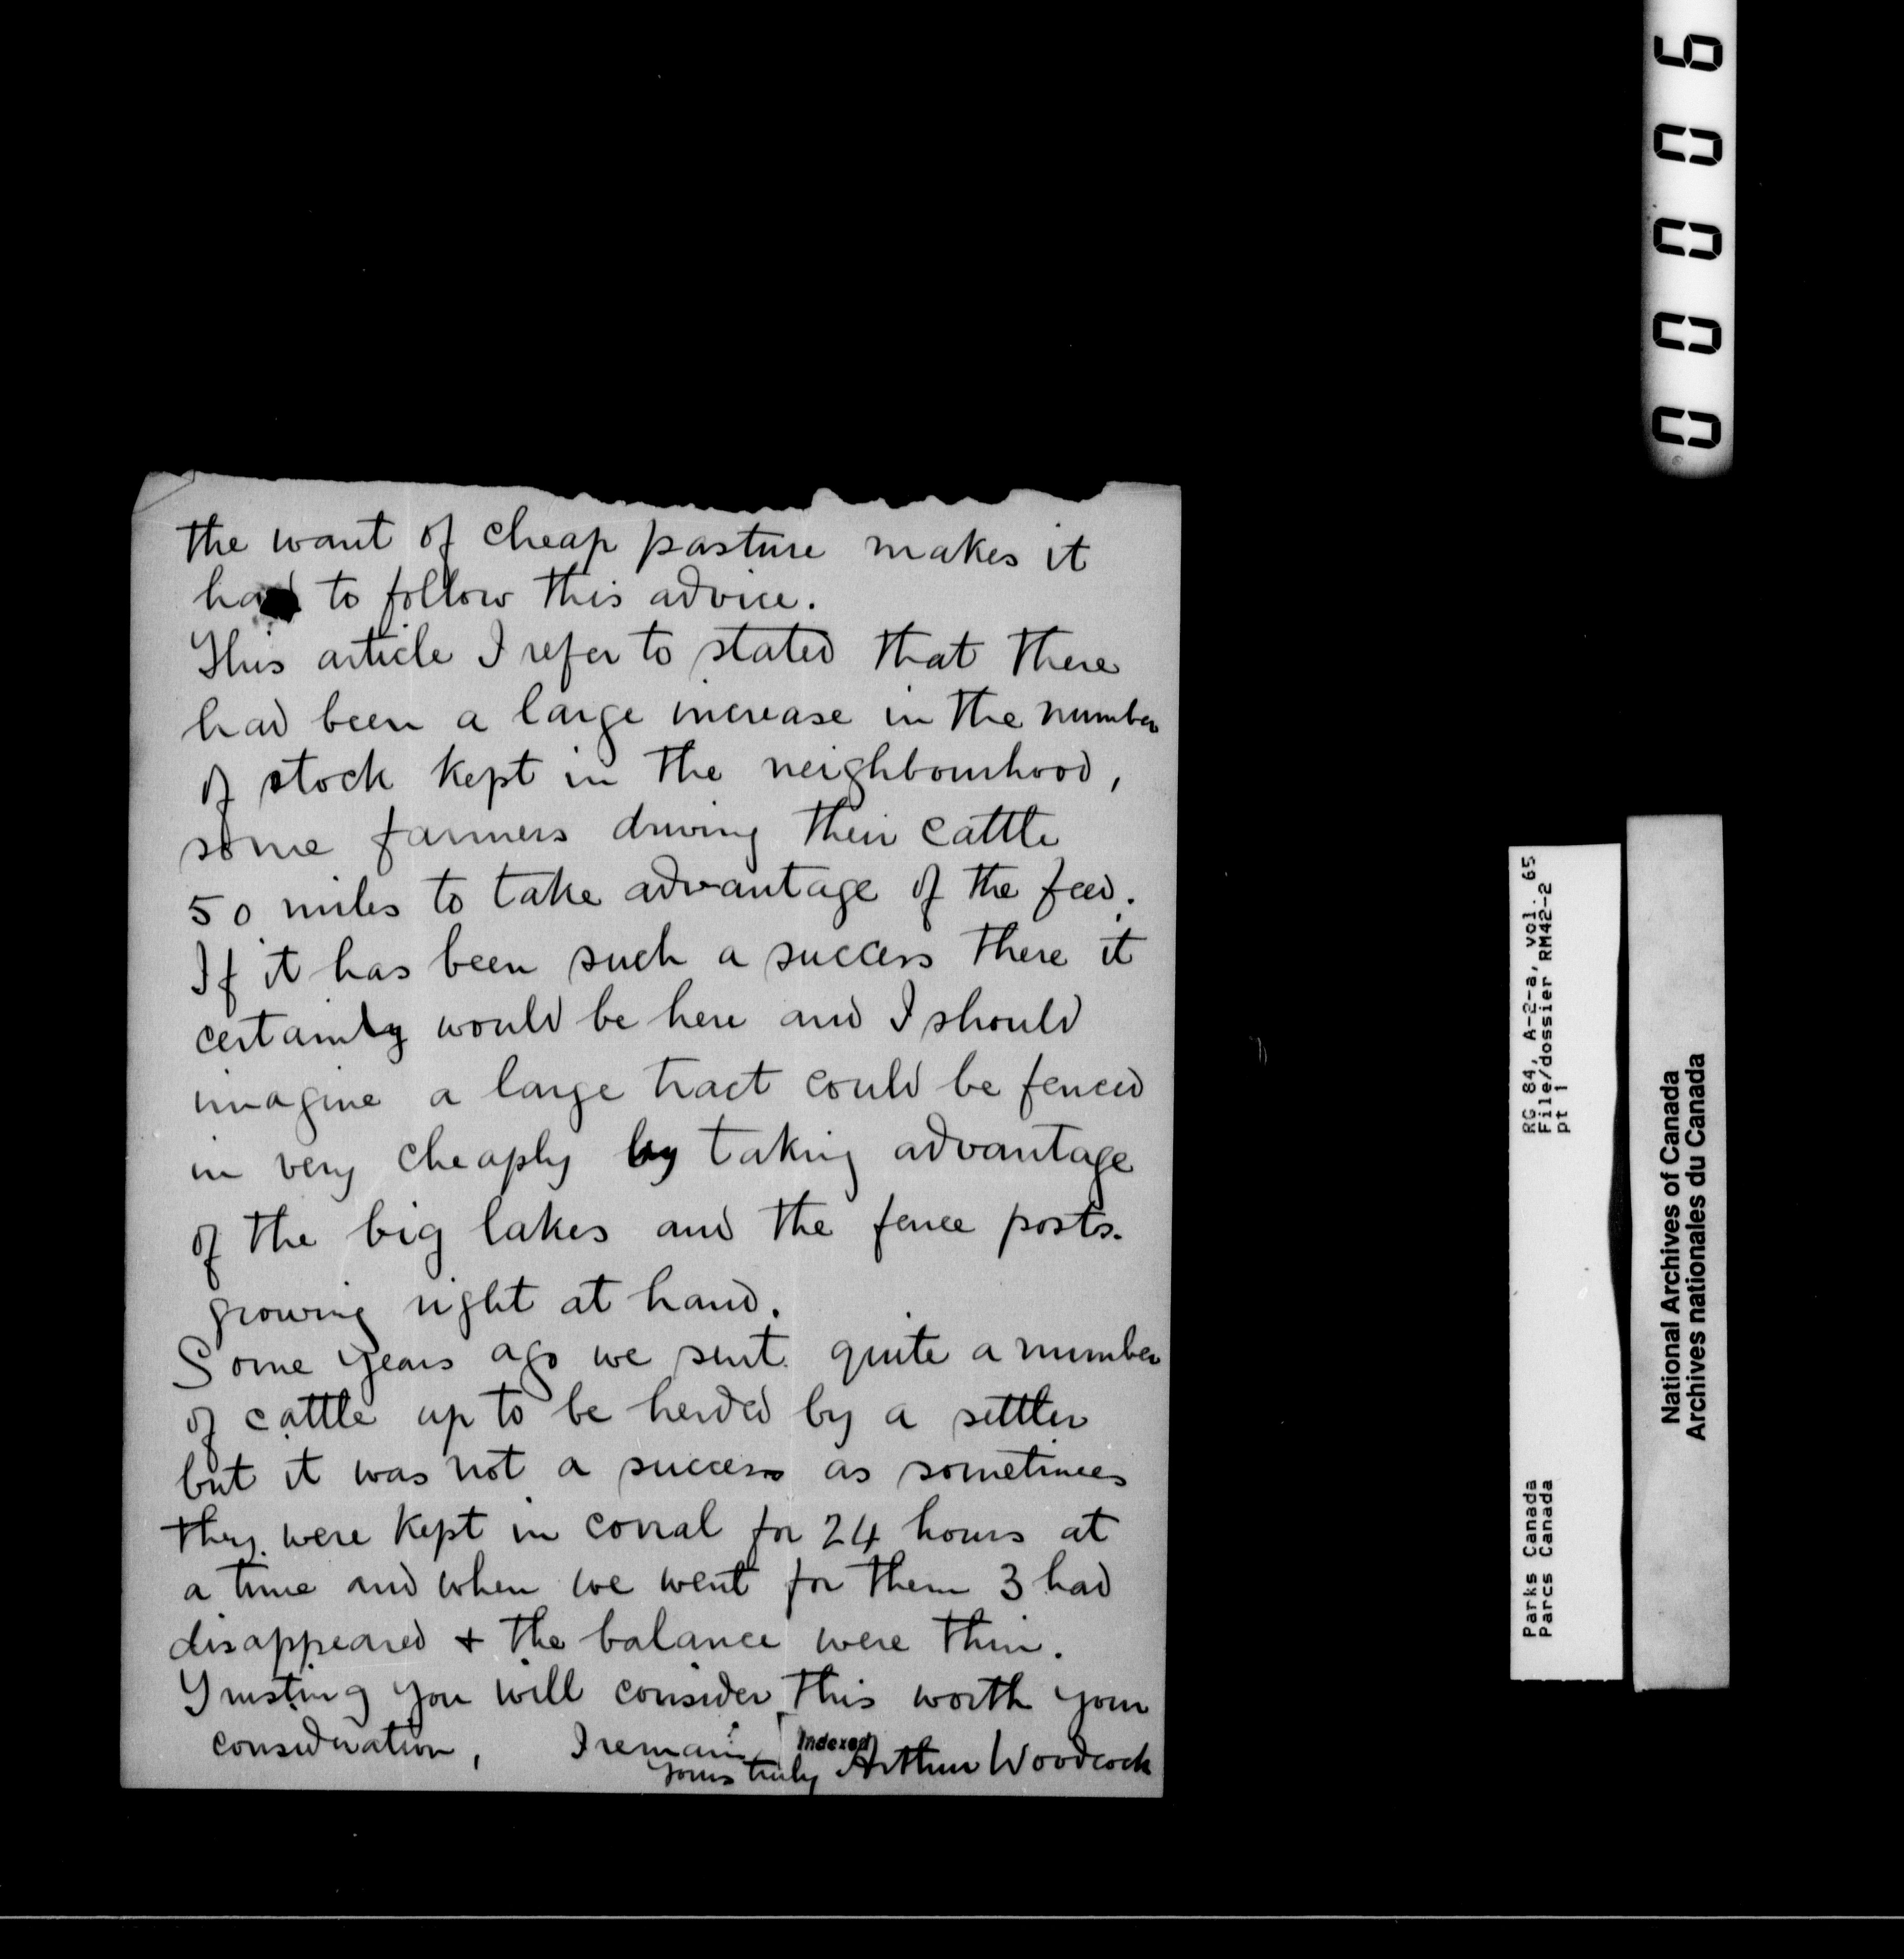 the want of cheap pasture makes it
hard to follow this advice.
This article I refer to stated that there
had been a large increase in the number
of stock kept in the neighbourhood,
some farmers driving their cattle
50 miles to take advantage of the feed.
If it has been such a success there it
certainly would be here and I should
imagine a large tract could be fenced
in very cheaply by taking advantage
of the big lakes and the fence posts.
growing right at hand.
Some years ago we sent quite a number
of cattle up to be herded by a settler
but it was not a success as sometimes
they were kept in corral for 24 hours at
a time and when we went for them 3 had
disappeared + the balance were thin.
Trusting you will consider this worth your
consideration, I remain
Indexed
yours truly Arthur Woodcock
00006
RG 84, A-2-a, vol. 65
File/dossier RM42-2
pt 1
Parks Canada
Parcs Canada
National Archives of Canada
Archives nationales du Canada